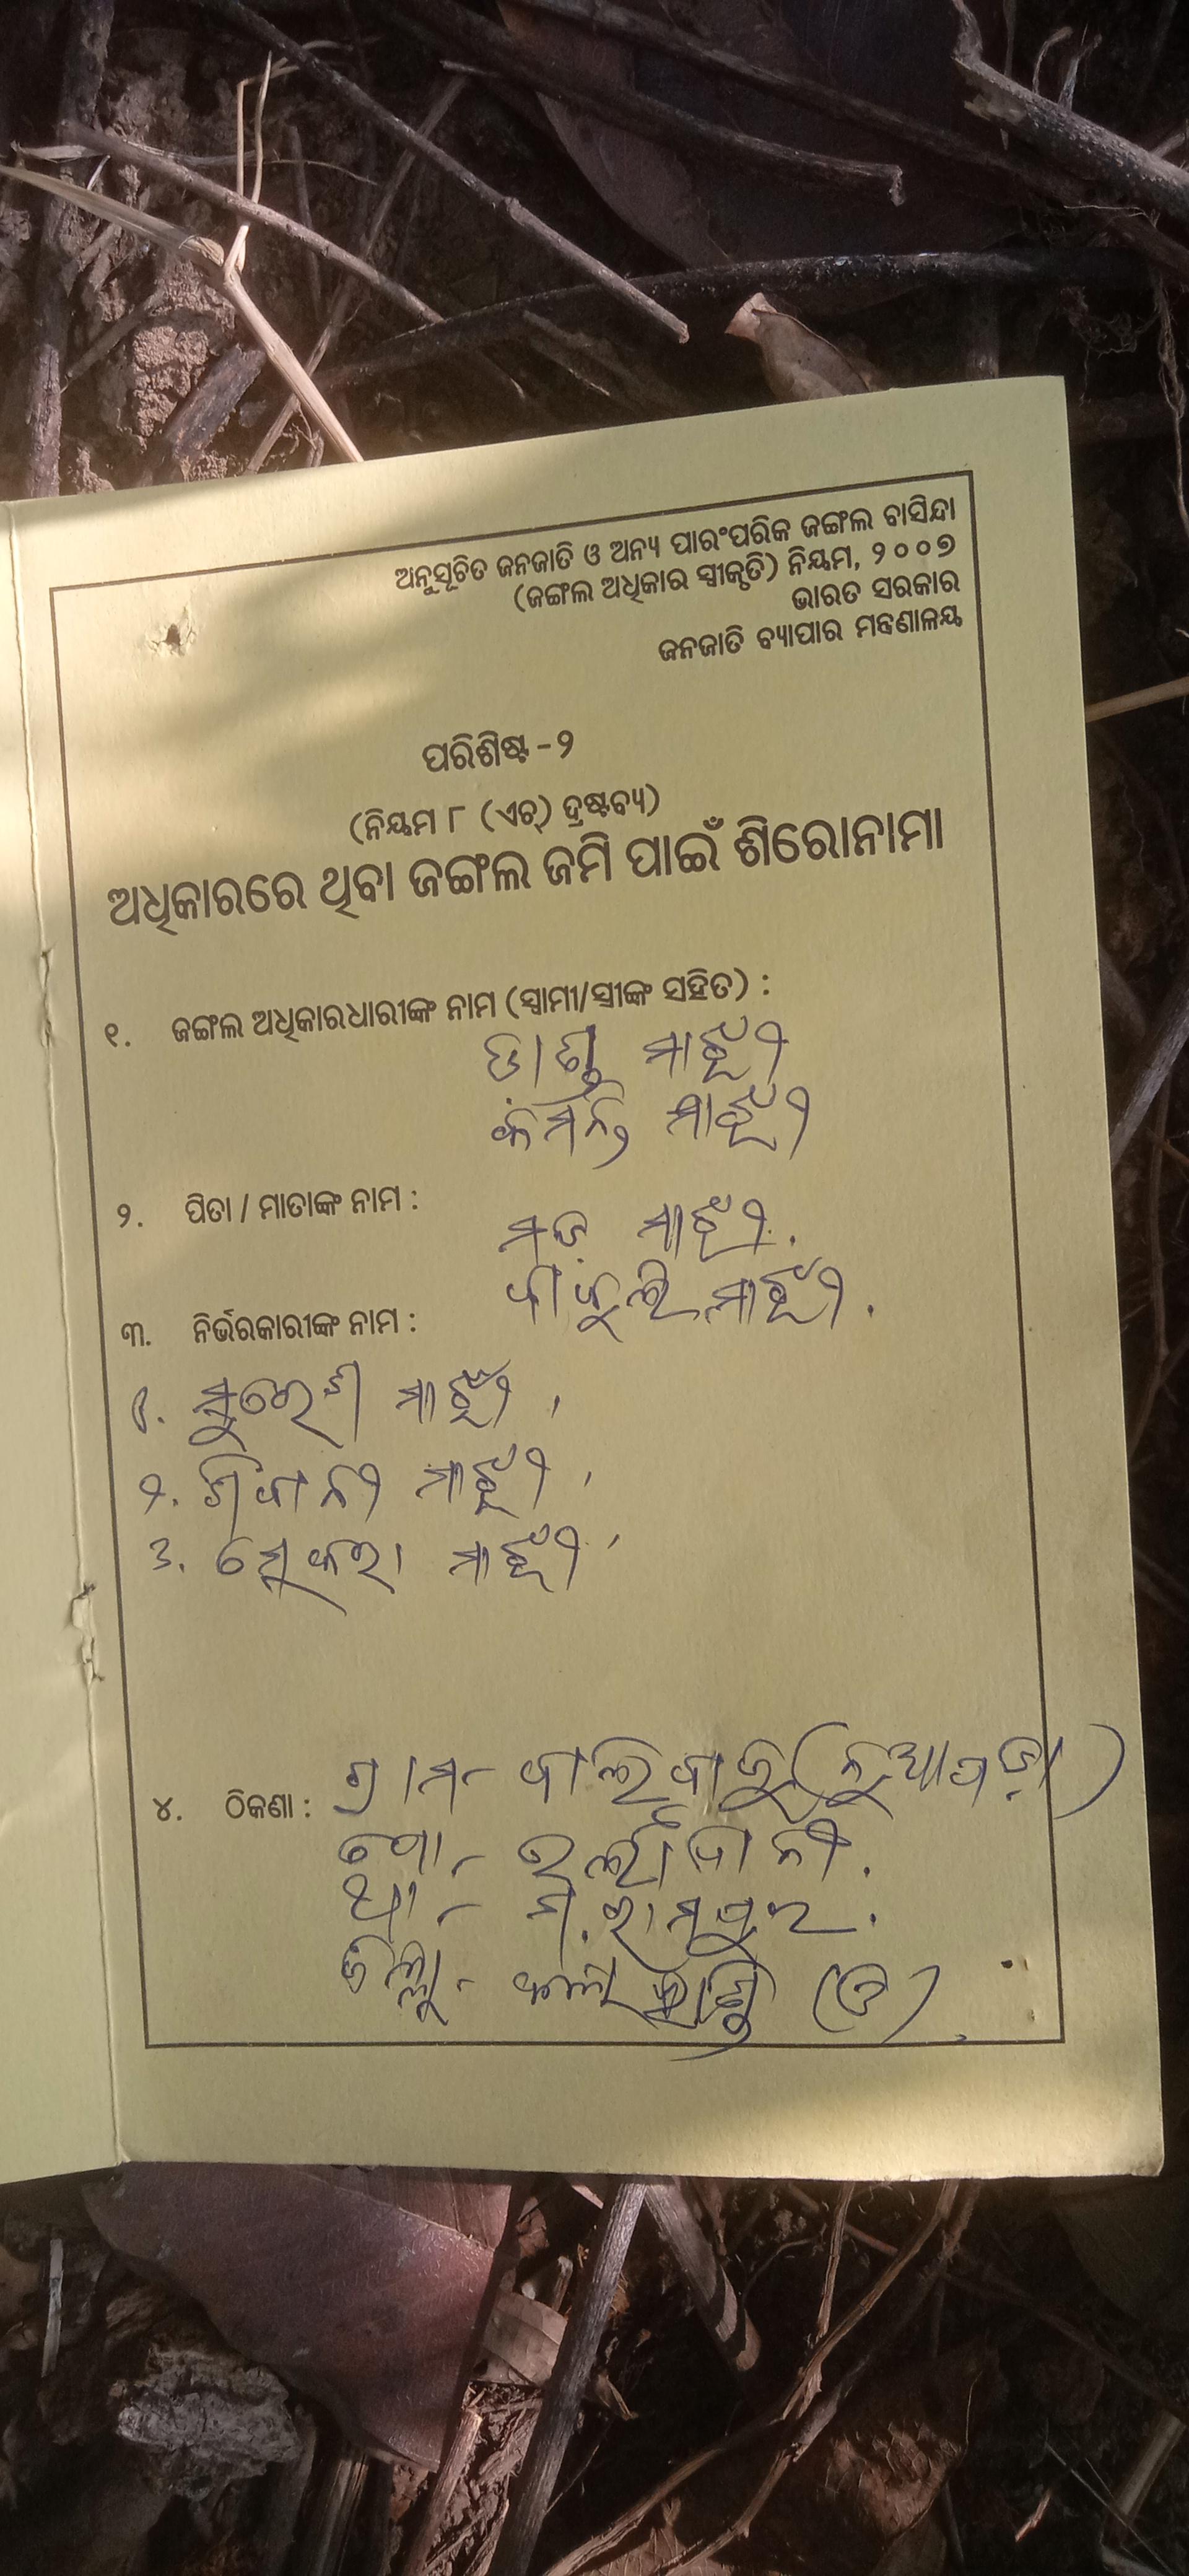 ଅନୁସୂଚିତ ଜନଜାତି ଓ ଅନ୍ୟ ପାରଂପରିକ ଜଙ୍ଗଲ ବାସିନ୍ଦା
(ଜଙ୍ଗଲ ଅଧିକାର ସ୍ୱୀକୃତି) ନିୟମ, ୨୦୦୭
ଭାରତ ସରକାର
ଜନଜାତି ବ୍ୟାପାର ମନ୍ତ୍ରଣାଳୟ
ପରିଶିଷ୍ଟ -୨
(ନିୟମ ୮ (ଏଚ୍) ଦ୍ରଷ୍ଟବ୍ୟ)
ଅଧିକାରରେ ଥିବା ଜଙ୍ଗଲ ଜମି ପାଇଁ ଶିରୋନାମା
୧. ଜଙ୍ଗଲ ଅଧିକାରଧାରୀଙ୍କ ନାମ (ସ୍ୱାମୀ/ସ୍ତ୍ରୀଙ୍କ ସହିତ) :
ମାଝୀ
ମାଝୀ
୨. ପିତା / ମାତାଙ୍କ ନାମ :
ମାଝୀ.
ମାଝୀ.
୩. ନିର୍ଭରକାରୀଙ୍କ ନାମ :
୧. ସୁରେଶ ମାଝୀ,
୨. ଶିବାନୀ ମାଝୀ,
୩. ମାଝୀ,
୪. ଠିକଣା : ଗ୍ରାମ-
ପୋ-
ଥା- ମ.ରାମପୁର.
ଜିଲ୍ଲା- କଳାହାଣ୍ଡି (ଓ)